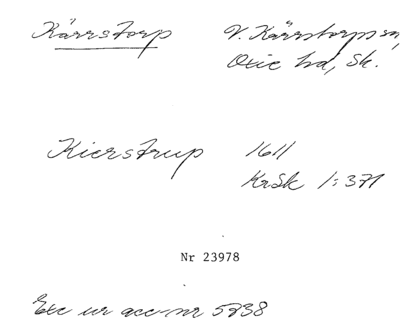 Kärrstorp V. Kärrstorps sn,
Oxie hd, Sk.
Kierstrup 1611
KrSk 1:371
Nr 23978
Exc ur acc-nr 5238